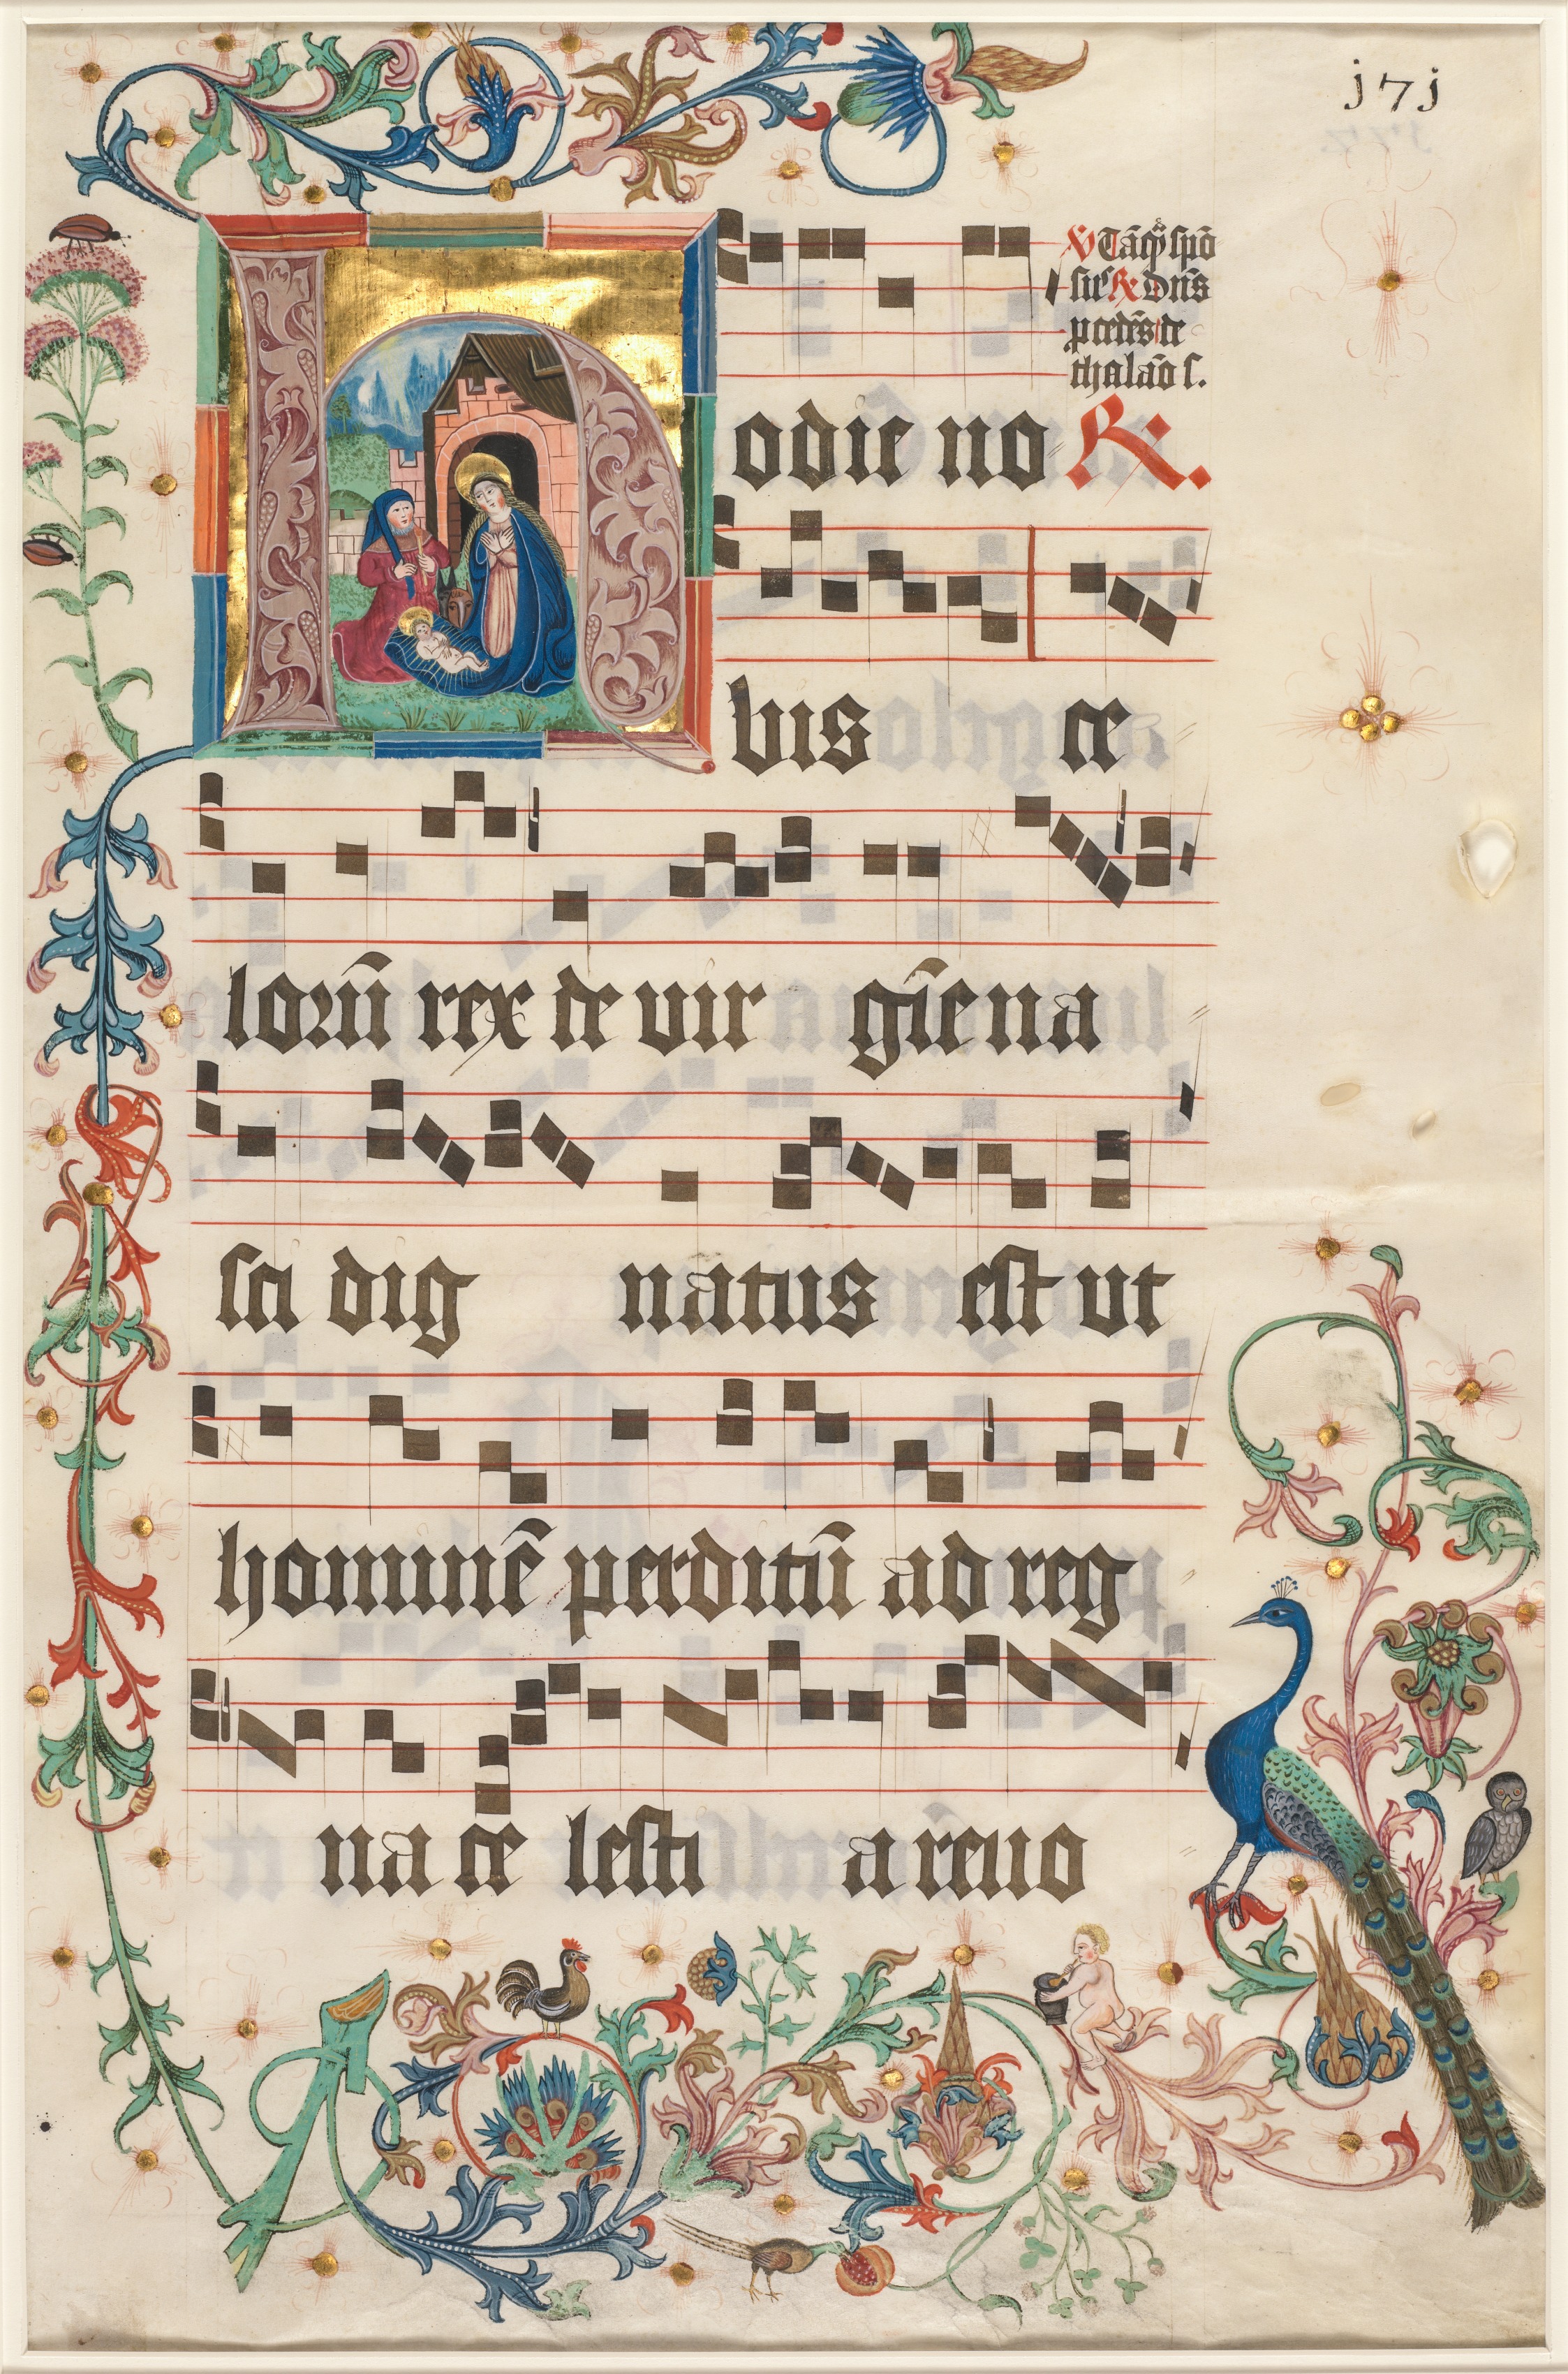 j7j
℣ Tāq̄ȝ spō
sus ℟ dn̄s
pcedēs de
thalāo s.
Hodie no ℟.
bis ce
lorū rex de vir gīe na
sci dig natus est ut
hominē perditū ad reg
na ce lesti a reuo